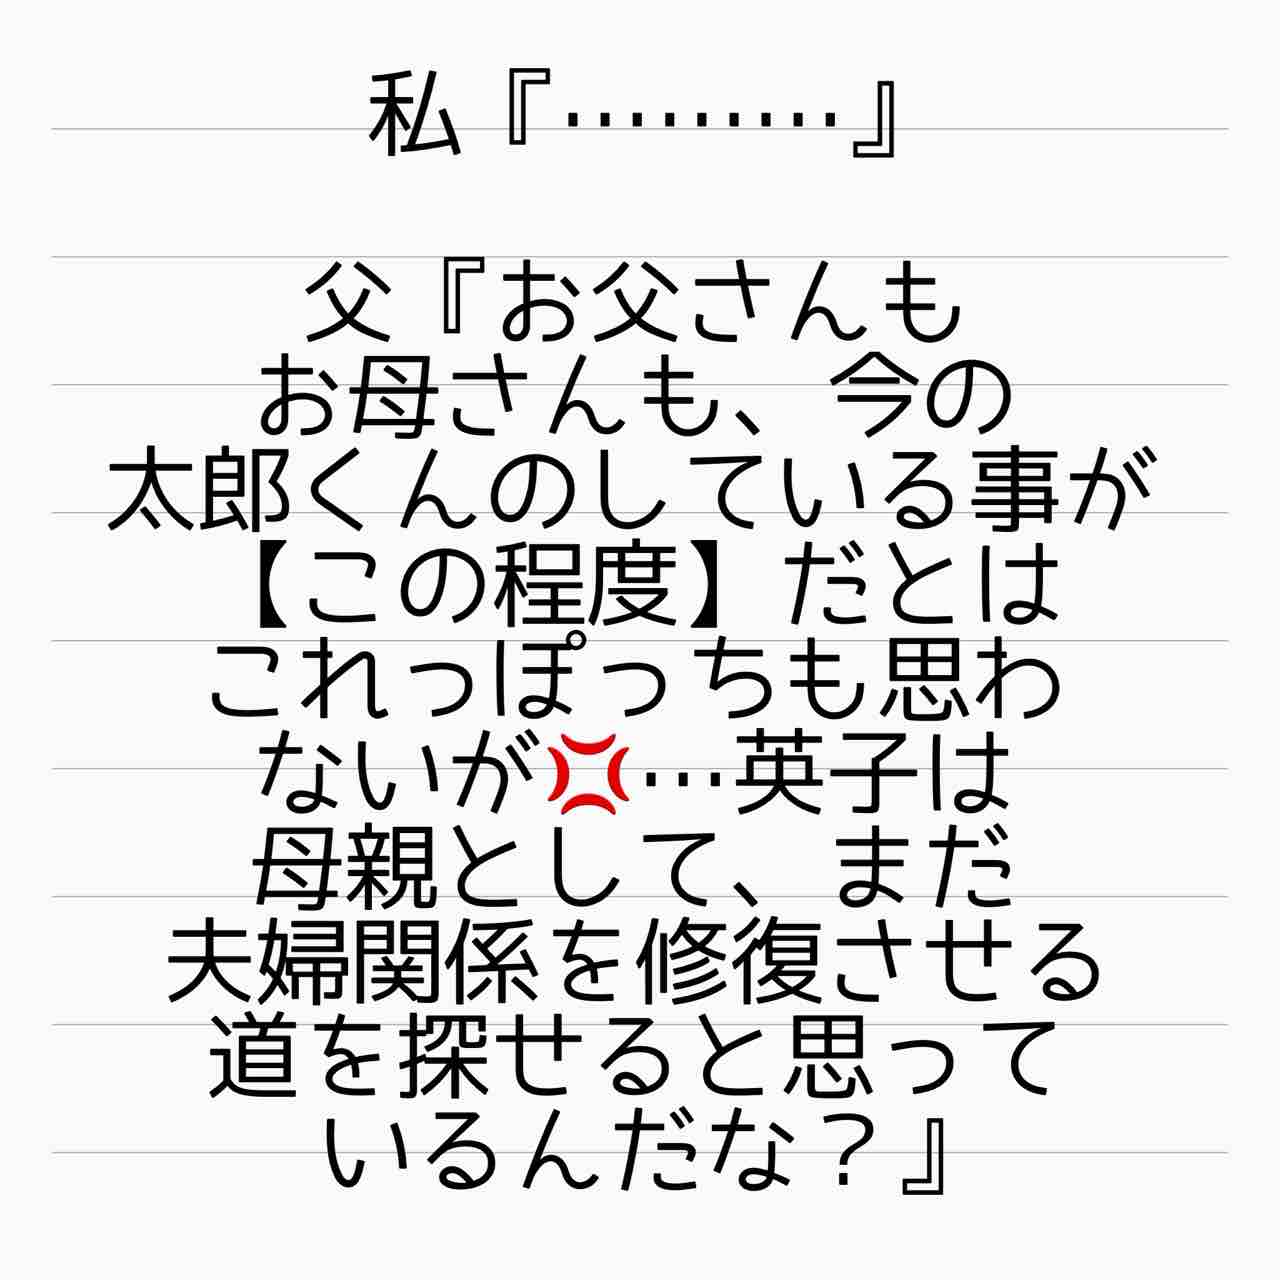 私『………』
父『お父さんも
お母さんも、今の
太郎くんのしている事が
【この程度】だとは
これっぽっちも思わ
ないが💢…英子は
母親として、まだ
夫婦関係を修復させる
道を探せると思って
いるんだな？』